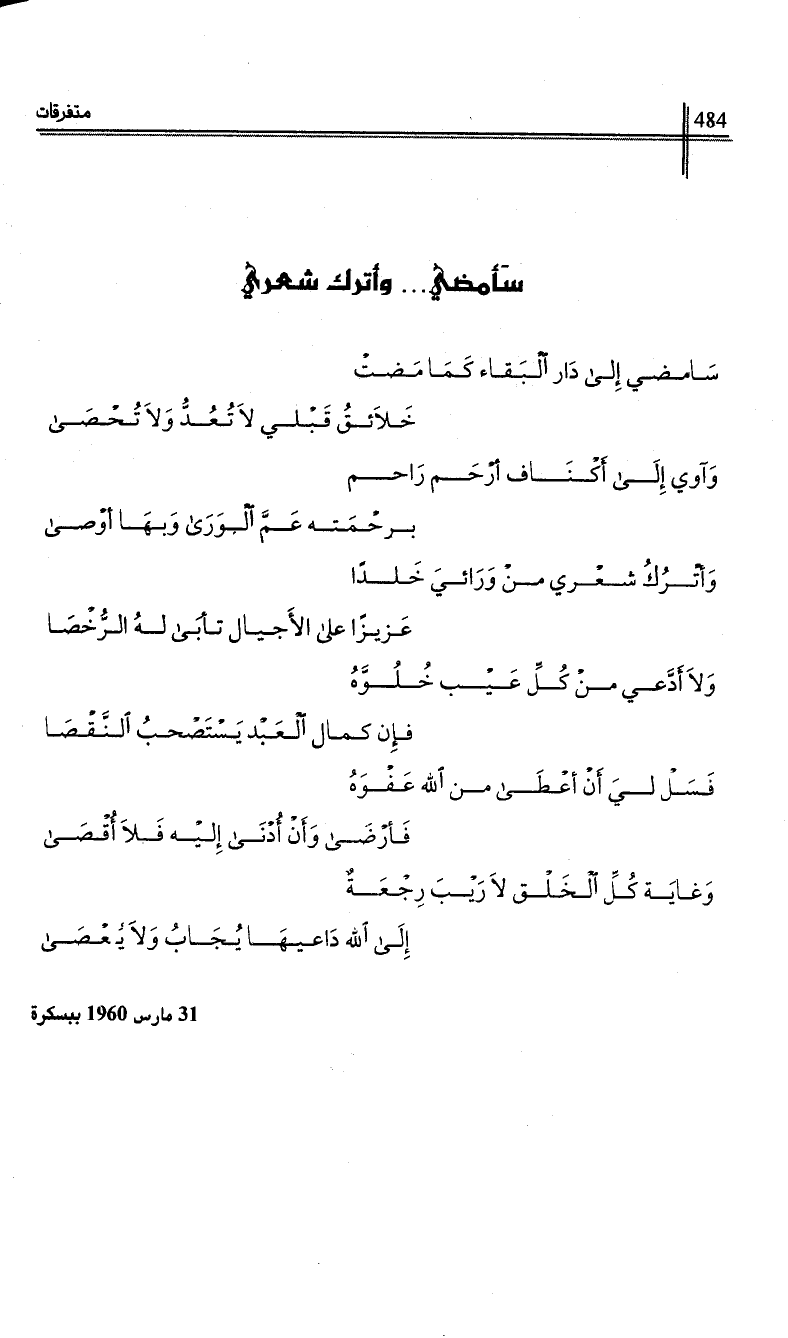 متفرقات
484
سأمضي... وأترك شعري
سَامضي إِلىٰ دَار ٱلبَقاء كَمَا مَضتْ
خَلائقُ قَبْلي لاَ تُعُدُّ وَلاَ تُحْصَىٰ
وَآوي إِلَىٰ أَكْنَاف أرْحَم رَاحم
برحْمَته عَمَّ ٱلْوَرَىٰ وَبهَا أوْصىٰ
وَأتْرُكُ شعْري منْ وَرَائيَ خَلدًا
عَزيزًا علىٰ الأَجيال تأبَىٰ لهُ الرُّخْصَا
وَلاَ أَدَّعي منْ كُلِّ عَيْب خُلُوَّهُ
فإِن كمال ٱلعَبْد يَسْتَصْحبُ ٱلنَّقْصَا
فَسَلْ ليَ أَنْ أعْطَىٰ من ٱلله عَفْوَهُ
فَأرْضَىٰ وَأَنْ أُدْنَىٰ إليْه فَلاَ أُقْصَىٰ
وَغايَة كُلِّ ٱلخَلْق لاَ رَيْبَ رِجْعَةٌ
إِلَىٰ ٱلله دَاعيهَا يُجَابُ وَلاَ يُعْصَىٰ
31 مارس 1960 ببسكرة